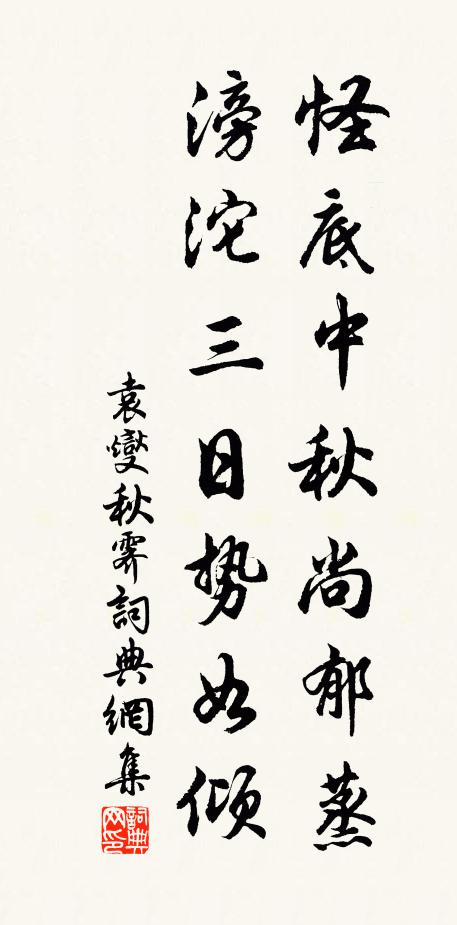 怪底中秋尚郁蒸
滂沱三日势如倾
袁燮秋霁詞典網集
詞典网印